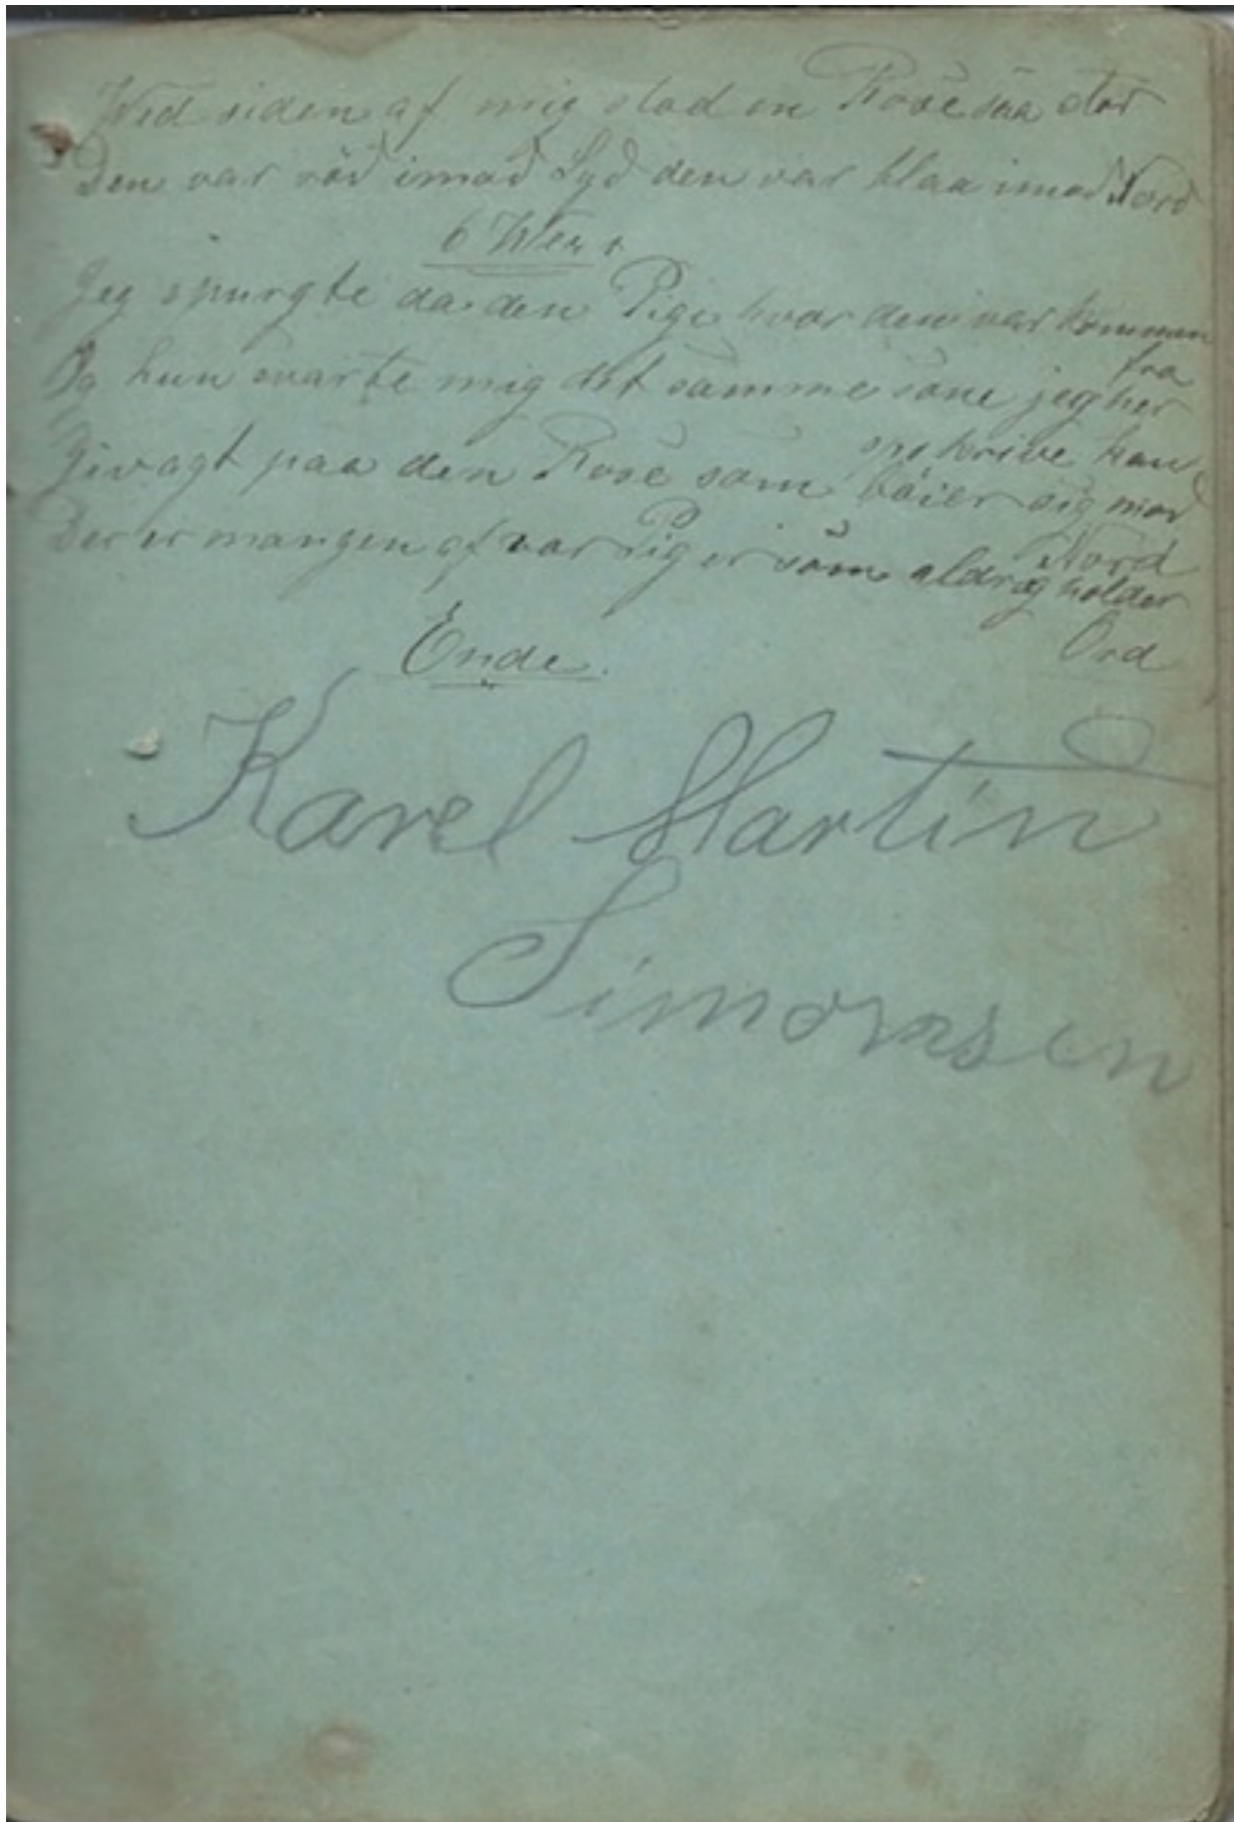 Wed siden af mig stod en Rose saa stor
Den var röd imod Syd den var blaa imod Nord
6 Wers
Jeg spurgte da den Pige hvor den var kommen
fra
Og hun svarte mig det samme som jeg her
opskrive kan
Givagt paa den Rose som böier sig mod
Nord
Der er mangen af vor Piger som aldrig holder
Ord
Ende.
Karel Martin
Simonsen